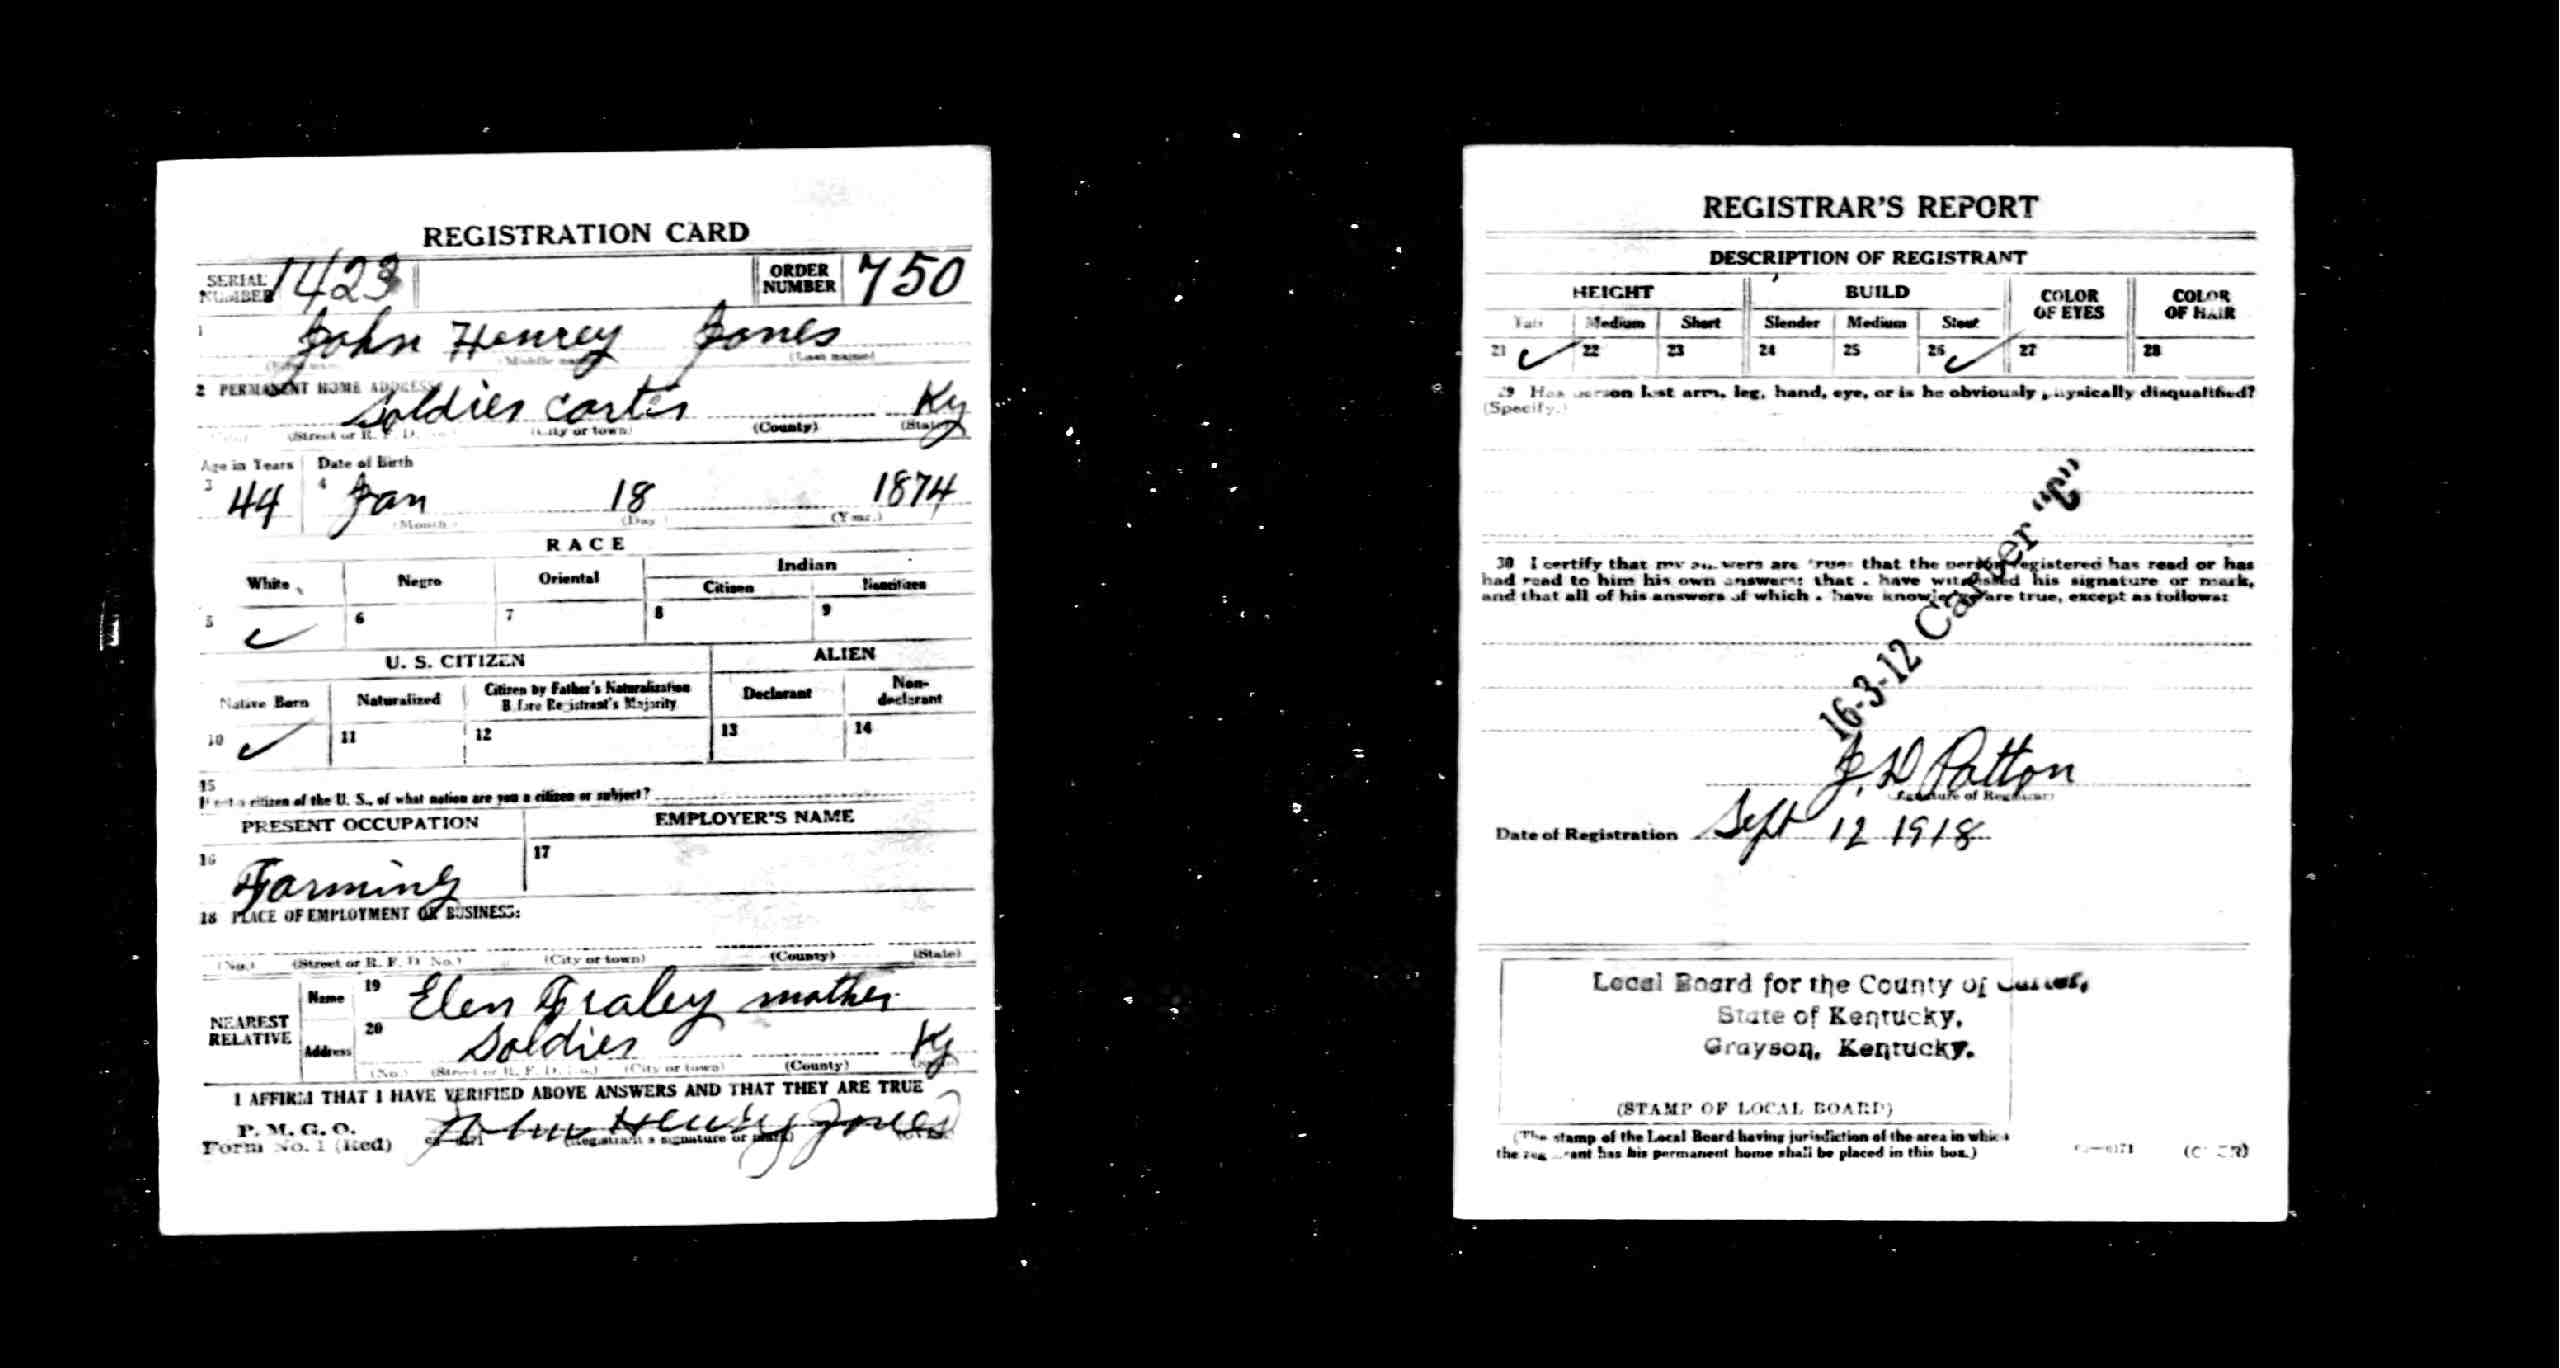 REGISTRATION CARD
SERIAL NUMBER 1423 ORDER NUMBER 750
1 John Henrey Jones
(Middle name) (Last name)
2 PERMANENT HOME ADDRESS:
Soldies carter Ky
(Street or R. F. D. No.) (City or town) (County) (State)
Age in Years Date of Birth
3 44 4 Jan 18 1874
(Month.) (Day.) (Year.)
RACE
White Negro Oriental Indian
Citizen Noncitizen
5 ✓ 6 7 8 9
U. S. CITIZEN ALIEN
Native Born Naturalized Citizen by Father's Naturalization Before Registrant's Majority Declarant Non-declarant
10 ✓ 11 12 13 14
15
If not a citizen of the U. S., of what nation are you a citizen or subject?
PRESENT OCCUPATION EMPLOYER'S NAME
16 Farming 17
18 PLACE OF EMPLOYMENT OR BUSINESS:
(No.) (Street or R. F. D. No.) (City or town) (County) (State)
NEAREST RELATIVE Name 19 Elen Fraley mother
Address 20 Soldies Ky
(No.) (Street or R. F. D. No.) (City or town) (County) (State)
I AFFIRM THAT I HAVE VERIFIED ABOVE ANSWERS AND THAT THEY ARE TRUE
P. M. G. O.
Form No. 1 (Red) John Henry Jones
(Registrant's signature or mark)
REGISTRAR'S REPORT
DESCRIPTION OF REGISTRANT
HEIGHT BUILD COLOR OF EYES COLOR OF HAIR
Tall Medium Short Slender Medium Stout
21 ✓ 22 23 24 25 26 ✓ 27 28
29 Has person lost arm, leg, hand, eye, or is he obviously physically disqualified?
(Specify.)
30 I certify that my answers are true; that the person registered has read or has
had read to him his own answers; that I have witnessed his signature or mark,
and that all of his answers of which I have knowledge are true, except as follows:
16-3-12 Carter "C"
J. D Patton
(Signature of Registrar)
Date of Registration Sept 12 1918
Local Board for the County of Carter,
State of Kentucky,
Grayson, Kentucky.
(STAMP OF LOCAL BOARD)
(The stamp of the Local Board having jurisdiction of the area in which
the registrant has his permanent home shall be placed in this box.)
(OVER)